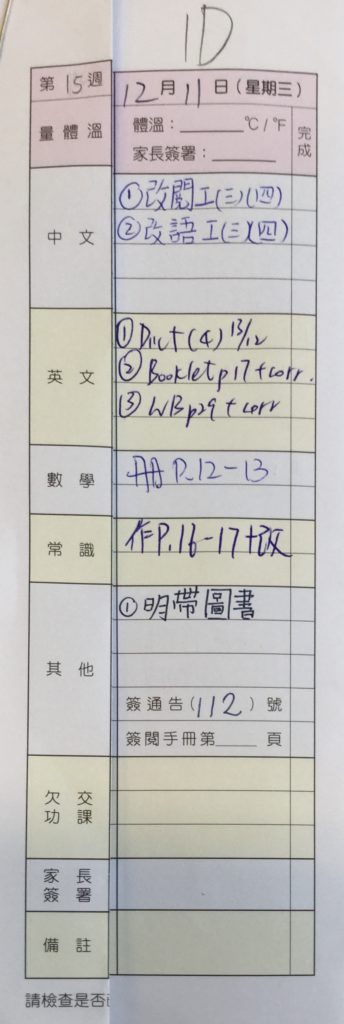 1D
第15週 12月11日(星期三)
量體溫 體溫：______℃/℉ 完成
家長簽署：______
中文 ①改閱工(三)(四)
②改語工(三)(四)
英文 ①Dict(4) 13/12
②Booklet p17+corr.
③WB p29 + corr
數學 冊P.12-13
常識 作P.16-17+改
其他 ①明帶圖書
簽通告(112)號
簽閱手冊第____頁
欠交功課
家長簽署
備註
請檢查是否